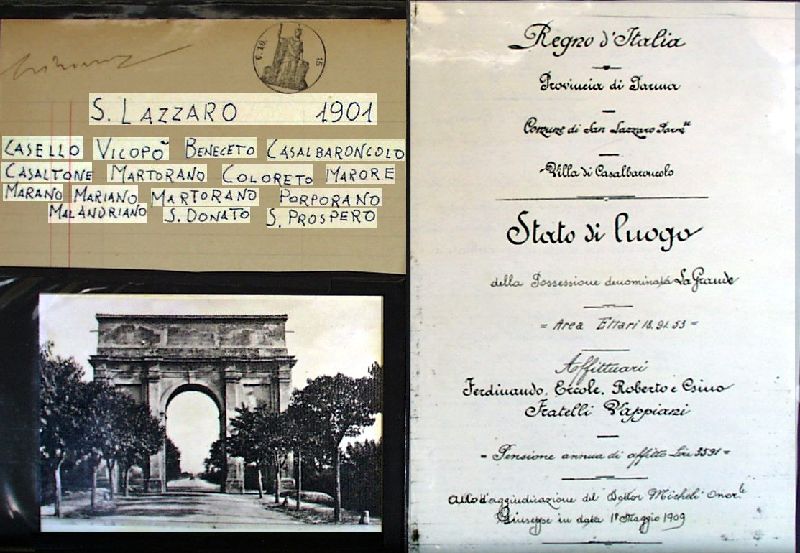 S. LAZZARO 1901
CASELLO VICOPO̅ BENECETO CASALBARONCOLO
CASALTONE MARTORANO COLORETO MARORE
MARANO MARIANO MARTORANO PORPORANO
MALANDRIANO S. DONATO S. PROSPERO
Regno d'Italia
Provincia di Parma
Comune di San Lazzaro Parm.se
Villa di Casalbaroncolo
Stato di luogo
della Possessione denominata La Grande
= Area Ettari 18.91.53 =
Affittuari
Ferdinando, Ercole, Roberto e Gsino
Fratelli Vappiani
- Pensione annua di affitto Lire 3591 -
Atto d'aggiudicazione del Dottor Micheli
Giuseppe in data 1° Maggio 1909